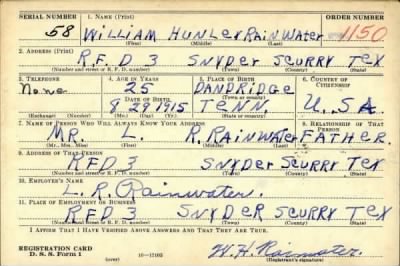 SERIAL NUMBER 1. NAME (Print) ORDER NUMBER
58 WILLIAM HUNLER RAINWATER 1150
(First) (Middle) (Last)
2. ADDRESS (Print)
R.F.D 3 SNYDER SCURRY TEX
(Number and street or R. F. D. number) (Town) (County) (State)
3. TELEPHONE 4. AGE IN YEARS 5. PLACE OF BIRTH 6. COUNTRY OF CITIZENSHIP
None 25 DANDRIDGE
DATE OF BIRTH (Town or county)
8 29 1915 TENN. U.S.A.
(Exchange) (Number) (Mo.) (Day) (Yr.) (State or country)
7. NAME OF PERSON WHO WILL ALWAYS KNOW YOUR ADDRESS 8. RELATIONSHIP OF THAT PERSON
MR. L. R. RAINWATER FATHER.
(Mr., Mrs., Miss) (First) (Middle) (Last)
9. ADDRESS OF THAT PERSON
RFD 3 SNYDER SCURRY TEX
(Number and street or R. F. D. number) (Town) (County) (State)
10. EMPLOYER'S NAME
L. R. Rainwater.
11. PLACE OF EMPLOYMENT OR BUSINESS
RFD 3 SNYDER SCURRY TEX
(Number and street or R. F. D. number) (Town) (County) (State)
I AFFIRM THAT I HAVE VERIFIED ABOVE ANSWERS AND THAT THEY ARE TRUE.
REGISTRATION CARD
D. S. S. Form 1 (over) W. H. Rainwater.
(Registrant's signature)